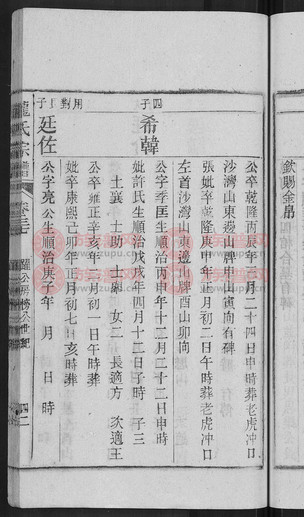 欽賜金帛
公卒乾隆丙辰年三月二十四日申時葬老虎冲口
沙灣山東邊山牌中山寅向有碑
張妣卒乾隆庚申年正月初二日午時葬老虎冲口
左首沙灣山東邊山牌酉山卯向
四子
希韓
公字季匡生順治庚申年十二月二十二日申時
妣許氏生順治戊戌年四月十二日子時 子三
士襄 士助 士卿 女二 長適方 次適王
公卒雍正辛亥年二月初一日午時葬
妣卒康熙己亥年正月初七日亥時葬
用對 子
廷佐
公字亮公生順治庚子年 月 日 時
龍氏宗譜